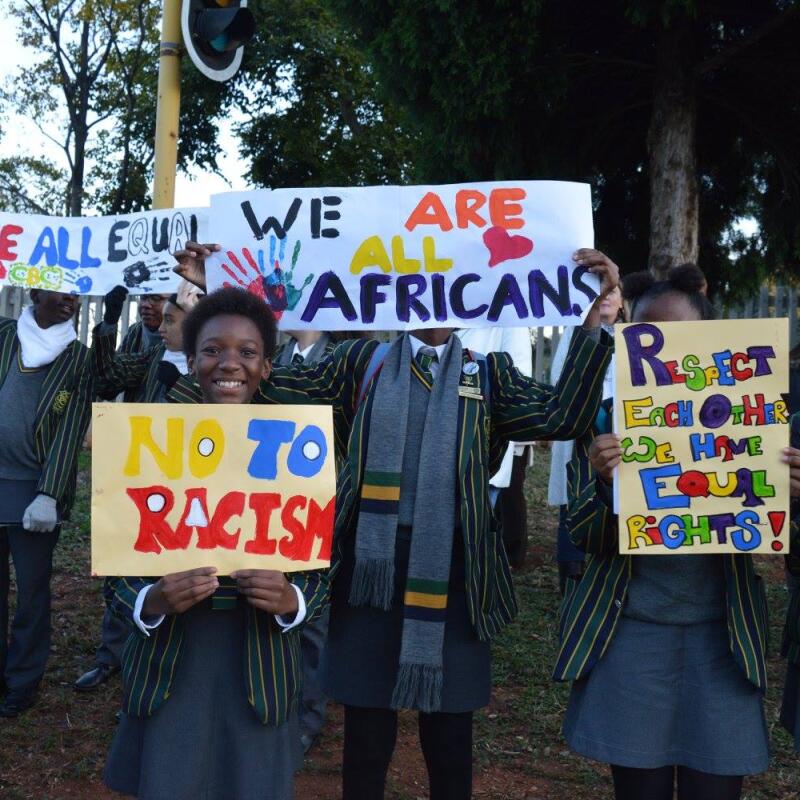 E ALL EQUAL
CBC
WE ARE
ALL
AFRICANS
NO TO
RACISM
RESPECT
EACH OTHER
WE HAVE
EQUAL
RIGHTS!